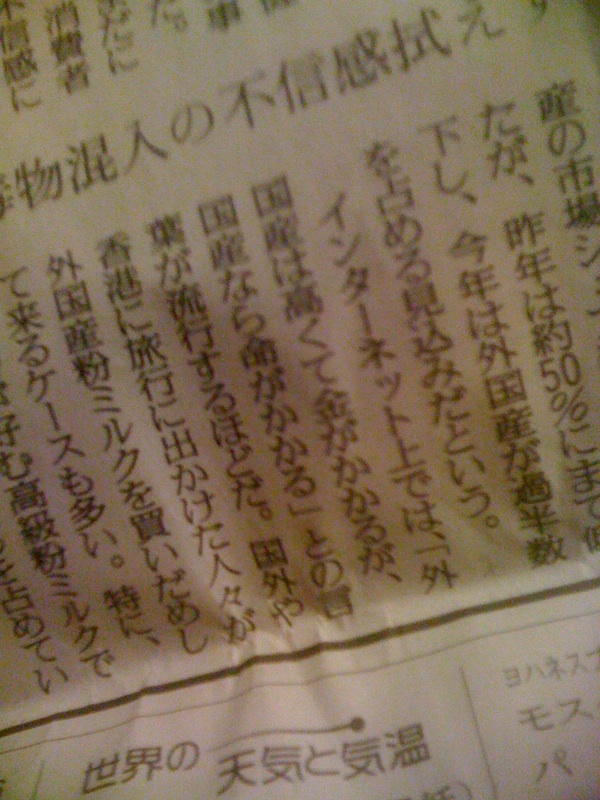 物混入の不信感拭え
産の市場シ
たが、昨年は約50%にまで低
下し、今年は外国産が過半数
を占める見込みだという。
インターネット上では、「外
国産は高くて金がかかるが、
国産なら命がかかる」との言
葉が流行するほどだ。国外や
香港に旅行に出かけた人々が
外国産粉ミルクを買いだめし
て来るケースも多い。特に、
好む高級粉ミルクで
を占めてい
消費者
不信感に
世界の 天気と気温
ヨハネスブ
モス
パ